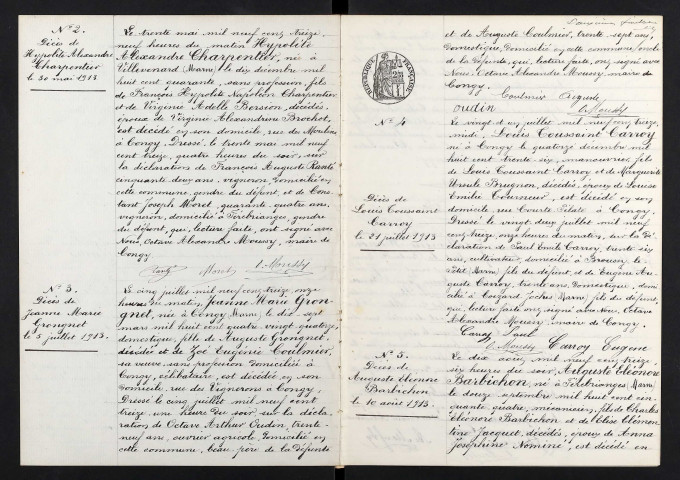 N° 2.
Décès de
Hypolite Alexandre
Charpentier
le 30 mai 1913
Le trente mai mil neuf cent treize,
neuf heures du matin Hypolite
Alexandre Charpentier, né à
Villevenard (Marne), le dix décembre mil
huit cent quarante, sans profession, fils
de François Hypolite Napoléon Charpentier
et de Virginie Adelle Borsion, décédés,
époux de Virginie Alexandrine Brochot,
est décédé en son domicile, rue du Moulin
à Congy. Dressé le trente mai mil neuf
cent treize, quatre heures du soir, sur
la déclaration de François Auguste
cinquante deux ans, vigneron, domicilié en
cette commune, gendre du défunt, et de Cons
tant Joseph Moret, quarante quatre ans,
vigneron, domicilié à Férebrianges, gendre
du défunt, qui, lecture faite, ont signé avec
Nous, Octave Alexandre Moussy, maire de
Congy
O. Moussy
N° 3.
Décès de
Jeanne Marie
Grongnet
le 5 juillet 1913.
Le cinq juillet mil neuf cent treize, onze
heures du matin, Jeanne Marie Gron-
gnet, née à Congy (Marne), le dix sept
mars mil huit cent quatre vingt quatorze,
domestique, fille de Auguste Grongnet,
décédé et de Zoé Eugénie Coulmier,
sa veuve, sans profession, domiciliée à
Congy, célibataire, est décédée en son
domicile, rue des Vignerons à Congy.
Dressé le cinq juillet mil neuf cent
treize, une heure du soir, sur la décla-
ration de Octave Arthur Oudin, trente-
neuf ans, ouvrier agricole, domicilié en
cette commune, beau-père de la défunte
et de Auguste Coulmier, trente sept ans,
domestique, domicilié en cette commune, oncle
de la défunte, qui, lecture faite, ont signé avec
Nous, Octave Alexandre Moussy, maire de
Congy.
Coulmier Auguste
oudin
O. Moussy
N° 4
Décès de
Louis Toussaint
Carroy
le 21 juillet 1913
Le vingt et un juillet mil neuf cent treize,
midi, Louis Toussaint Carroy
né à Congy le quatorze décembre mil
huit cent trente six, manouvrier, fils
de Louis Toussaint Carroy et de Marguerite
Ursule Brugnon, décédés, époux de Louise
Emilie Courneur, est décédé en son
domicile, rue Comte Pilate à Congy.
Dressé le vingt deux juillet mil neuf
cent treize, onze heures du matin, sur la dé
claration de Paul Emile Carroy, trente six
ans, cultivateur, domicilié à Broussy-le-
Petit (Marne), fils du défunt, et de Eugène Au
guste Carroy, trente ans, domestique, domi
cilié à Coizard Joches (Marne), fils du défunt,
qui, lecture faite, ont signé avec Nous, Octave
Alexandre Moussy, maire de Congy.
Carroy Paul
O. Moussy
Carroy Eugène
N° 5.
Décès de
Auguste Eléonore
Barbichon
le 10 août 1913.
Le dix août mil neuf cent treize,
six heures du soir, Auguste Eléonore
Barbichon, né à Férebrianges (Marne),
le douze septembre mil huit cent cin
quante quatre, mécanicien, fils de Charles
Eléonore Barbichon et de Elise Clémen
tine Jacquet, décédés, époux de Anna
Joséphine Nominé, est décédé en